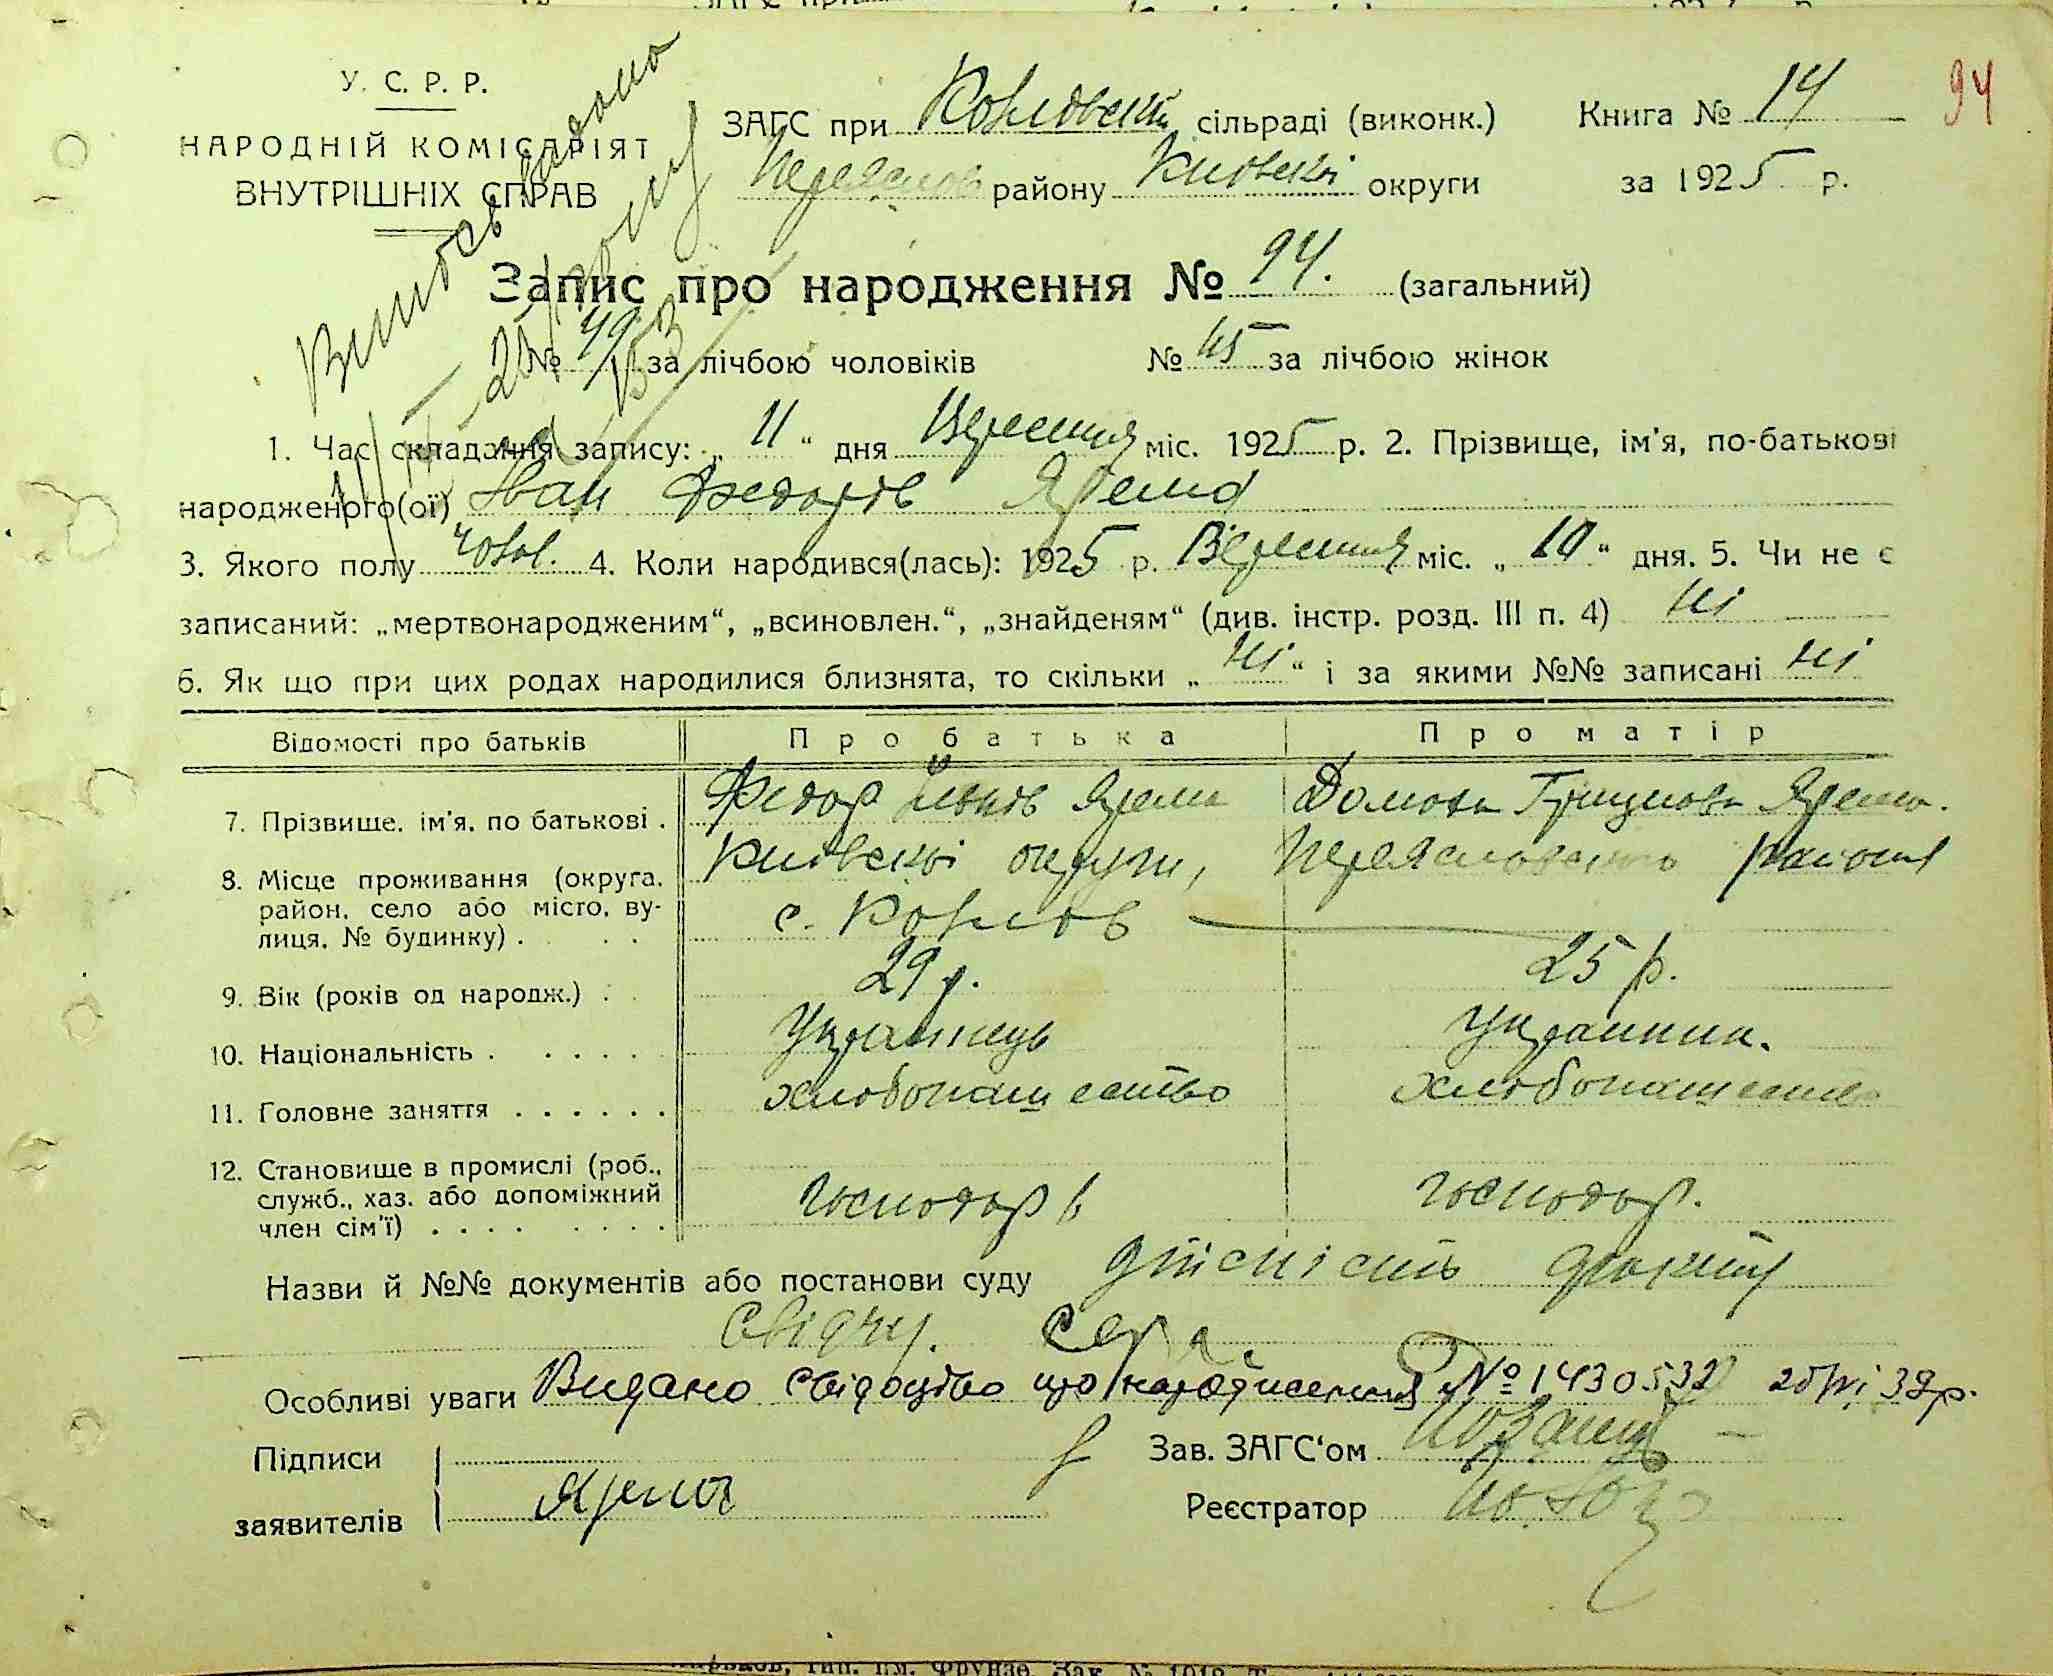 У. С. Р. Р.
НАРОДНІЙ КОМІСАРІЯТ
ВНУТРІШНІХ СПРАВ
ЗАГС при Ковлівскій сільраді (виконк.) Книга № 14
94
Переяслов району Київскі округи за 1925 р.
Запис про народження № 94. (загальний)
№ 49 за лічбою чоловіків № 45 за лічбою жінок
1. Час складання запису: „ 11 “ дня Вересня міс. 1925 р. 2. Прізвище, ім'я, по-батькові
народженого(ої) Іван Федорів Ярема
3. Якого полу чолов. 4. Коли народився(лась): 1925 р. Вересня міс. „ 10 “ дня. 5. Чи не є
записаний: „мертвонародженим“, „всиновлен.“, „знайденям“ (див. інстр. розд. III п. 4) Ні
6. Як що при цих родах народилися близнята, то скільки „ Ні “ і за якими №№ записані Ні
Відомості про батьків Про батька Про матір
7. Прізвище, ім'я, по батькові . Федор Ярема Домаха Грицькова Ярема.
8. Місце проживання (округа, район, село або місто, вулиця, № будинку) . Київскої округи, Переяславского району
с.
9. Вік (років од народж.) . 29 р. 25 р.
10. Національність . Українець Українка.
11. Головне заняття . . . . . . хлібопашество хлібопашество
12. Становище в промислі (роб.,
служб., хаз. або допоміжний
член сім'ї) . . . . господар господар.
Назви й №№ документів або постанови суду дійсність факту
свідчу.
Особливі уваги Видано свідоцтво що народження № 1430532
Підписи
заявителів Ярема
Зав. ЗАГС'ом
Реєстратор